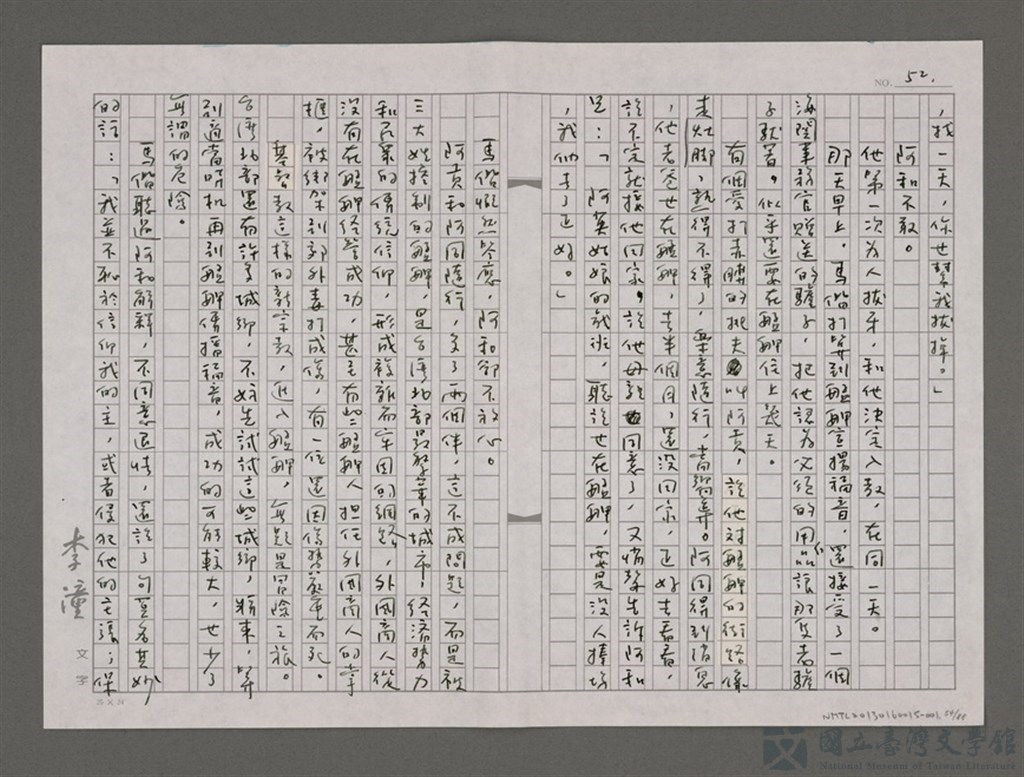 NO. 52.
，找一天，你也幫我拔掉。」
阿和不敢。
他第一次為人拔牙，和他決定入教，在同一天。
那天早上，馬偕打算到艋舺宣揚福音，還接受了一個
海關事務官贈送的驢子，把他認為必須的用品讓那隻老驢
子馱著。似乎還要在艋舺住上幾天。
有個愛打赤膊的挑夫叫阿貢，說他對艋舺的街路像
走灶腳，熟得不得了，樂意隨行，當嚮導。阿同得到消息
，他老爸也在艋舺，去半個月，還沒回家，正好去看看，
說不定就接他回家。說他母親也同意了，又悄聲告訴阿和
是：「阿英姑娘的戲班，聽說也在艋舺，要是沒人捧場
，我們去了正好。」
馬偕慨然答應，阿和卻不放心。
阿貢和阿同隨行，多了兩個伴，這不成問題，而是被
三大姓控制的艋舺，是台灣北部最繁華的城市，經濟勢力
和民眾的傳統信仰，形成複雜而牢固的網路，外國商人從
沒有在艋舺經營成功，甚至有些艋舺人擔任外國商人的掌
櫃，被綁架到郊外毒打成傷，有一位還因傷勢嚴重而死。
基督教這樣的新宗教，進入艋舺，無疑是冒險之旅。
台灣北部還有許多城鄉，不妨先試試這些城鄉，將來，算
到適當時机再到艋舺傳播福音，成功的可能較大，也少了
無謂的危險。
馬偕聽過阿和解釋，不同意退怯，還說了句莫名其妙
的話：「我並不恥於信仰我的主，或者侵犯他的主張；保
李潼
文字
25×24
NMTL20130160015-001. 54/88
國立臺灣文學館
National Museum of Taiwan Literature